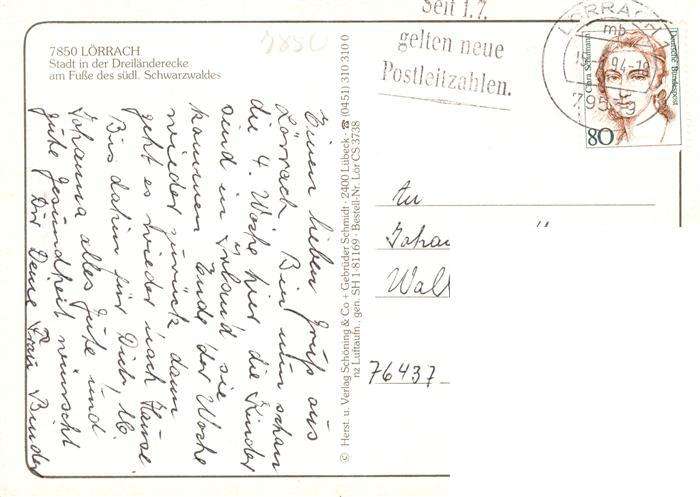 7850 LÖRRACH
Stadt in der Dreiländerecke
am Fuße des südl. Schwarzwaldes
7850
Seit 1.7.
gelten neue
Postleitzahlen.
LÖRRACH 1
mb
94-19
795
Clara Schumann
Deutsche Bundespost
80
Einen lieben Gruß aus
Lörrach. Bin nun schon
die 4. Woche hier die Kinder
sind in Urlaub sie
kommen Ende der Woche
wieder zurück dann
geht es wieder nach Hause.
Bis dahin für Dich, lb.
Johanna alles Gute und
gute Gesundheit wünscht
Dir Deine Frau Binder
© Herst. u. Verlag Schöning & Co + Gebrüder Schmidt · 2400 Lübeck · ☎ (0451) 310 310 0
nz Luftaufn., gen. SH 1-81169 · Bestell-Nr. Lör CS 3738
An
Johan
Wall
76437